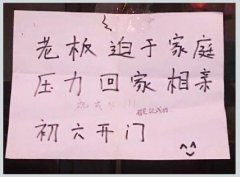 老板迫于家庭
压力回家相亲
初六开门
^^